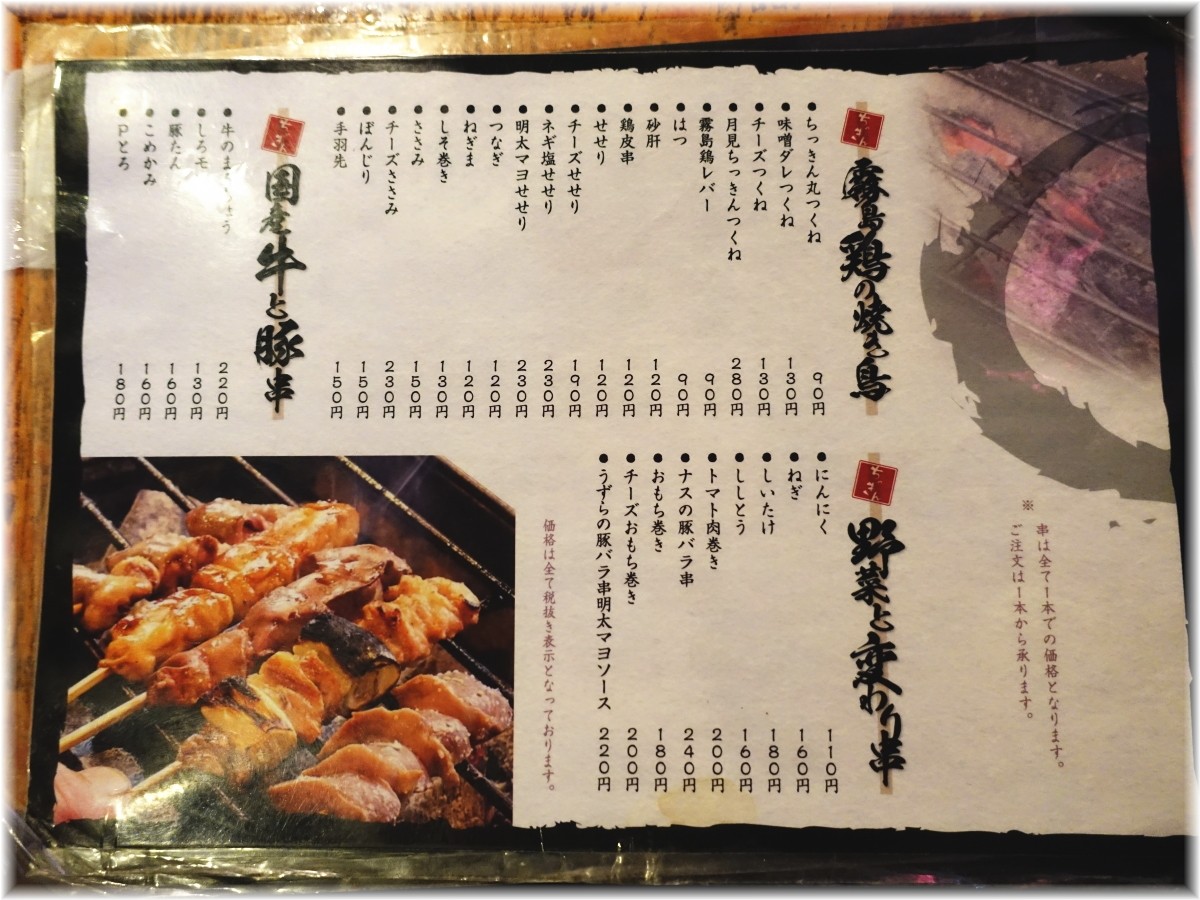 ちっきん
霧島鶏の焼き鳥
●ちっきん丸つくね 90円
●味噌ダレつくね 130円
●チーズつくね 130円
●月見ちっきんつくね 280円
●霧島鶏レバー 90円
●はつ 90円
●砂肝 120円
●鶏皮串 120円
●せせり 120円
●チーズせせり 190円
●ネギ塩せせり 230円
●明太マヨせせり 230円
●つなぎ 120円
●ねぎま 120円
●しそ巻き 130円
●ささみ 150円
●チーズささみ 230円
●ぼんじり 150円
●手羽先 150円
ちっきん
国産牛と豚串
●牛の 220円
●しろモ 130円
●豚たん 160円
●こめかみ 160円
●Pとろ 180円
※ 串は全て1本での価格となります。
ご注文は1本から承ります。
ちっきん
野菜と変わり串
●にんにく 110円
●ねぎ 160円
●しいたけ 180円
●ししとう 160円
●トマト肉巻き 200円
●ナスの豚バラ串 240円
●おもち巻き 180円
●チーズおもち巻き 200円
●うずらの豚バラ串明太マヨソース 220円
価格は全て税抜き表示となっております。